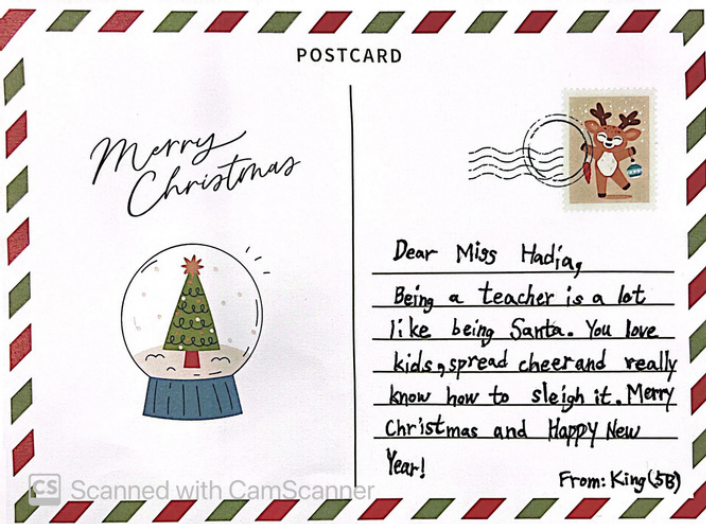 POSTCARD
Merry
Christmas
Dear Miss Hadia,
Being a teacher is a lot
like being Santa. You love
kids, spread cheer and really
know how to sleigh it. Merry
Christmas and Happy New
Year!
From: King (5B)
CS Scanned with CamScanner